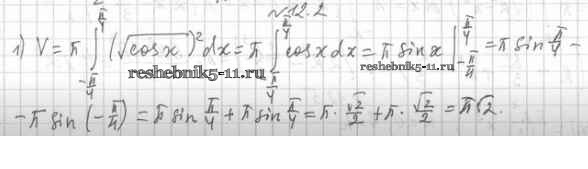 № 12.2
1) V = π ∫_{-π/4}^{π/4} (√cos x)² dx = π ∫_{-π/4}^{π/4} cos x dx = π sin x |_{-π/4}^{π/4} = π sin π/4 -
reshebnik5-11.ru reshebnik5-11.ru
- π sin (-π/4) = π sin π/4 + π sin π/4 = π · √2/2 + π · √2/2 = π√2.